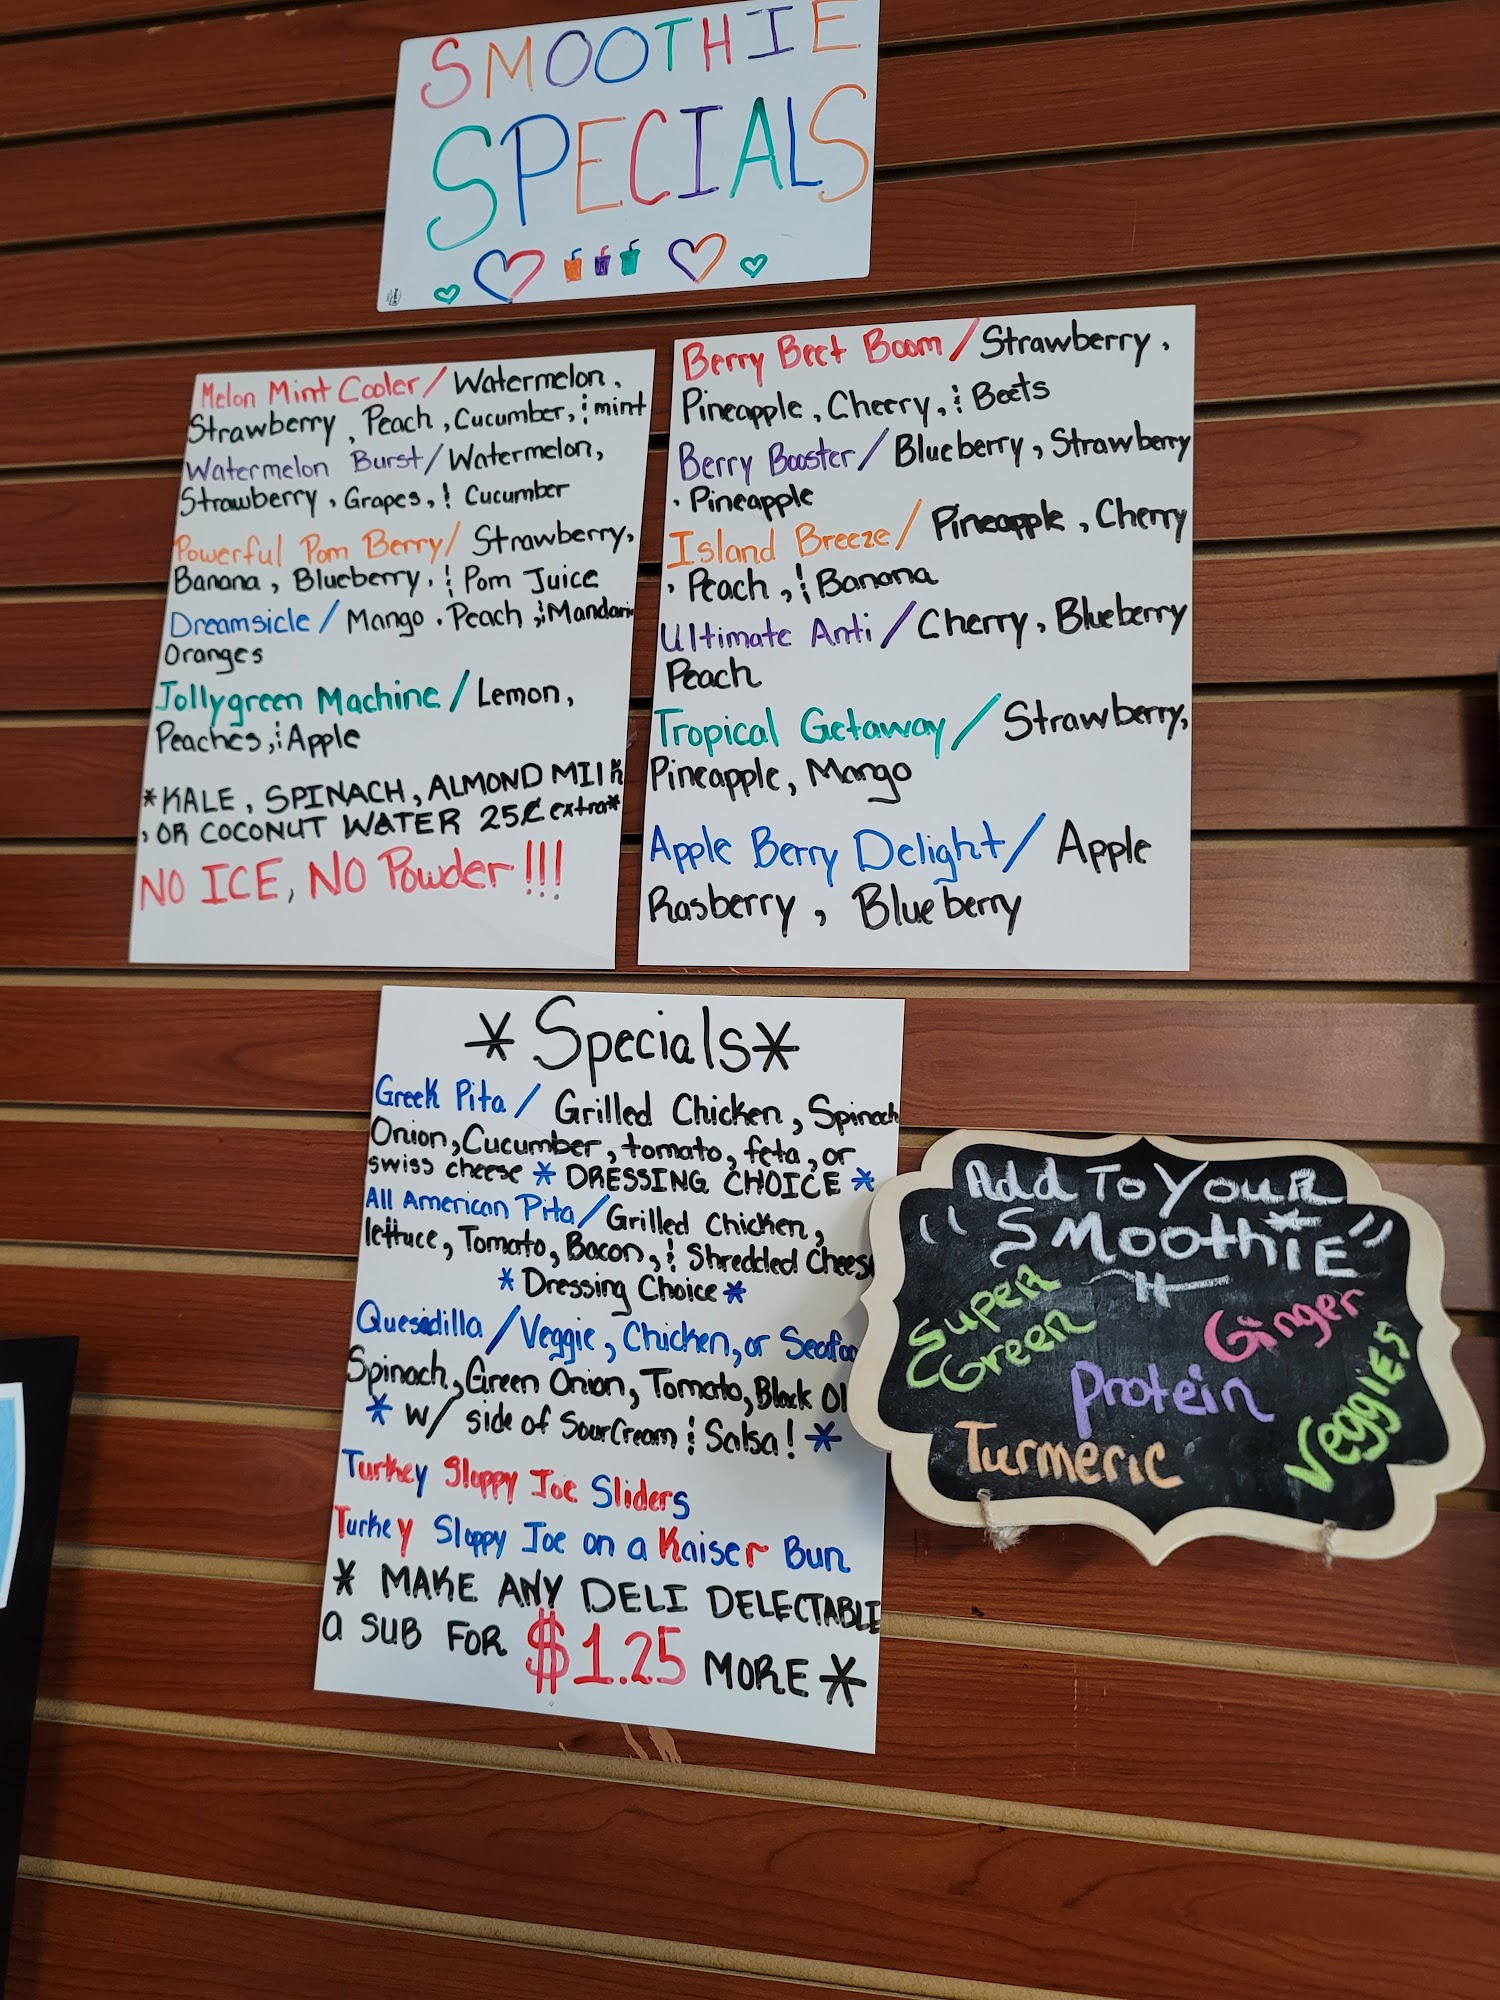 SMOOTHIE
SPECIALS
Melon Mint Cooler/ Watermelon,
Strawberry, Peach, Cucumber, & mint
Watermelon Burst/ Watermelon,
Strawberry, Grapes, & Cucumber
Powerful Pom Berry/ Strawberry,
Banana, Blueberry, & Pom Juice
Dreamsicle/ Mango, Peach, & Mandarin
Oranges
Jollygreen Machine/ Lemon,
Peaches, & Apple
*KALE, SPINACH, ALMOND MIlK
, OR COCONUT WATER 25¢ extra*
NO ICE, NO Powder!!!
Berry Beet Boom/ Strawberry,
Pineapple, Cherry, & Beets
Berry Booster/ Blueberry, Strawberry
, Pineapple
Island Breeze/ Pineapple, Cherry
, Peach, & Banana
Ultimate Anti/ Cherry, Blueberry
Peach
Tropical Getaway/ Strawberry,
Pineapple, Mango
Apple Berry Delight/ Apple
Rasberry, Blueberry
*Specials*
Greek Pita/ Grilled Chicken, Spinach
Onion, Cucumber, tomato, feta, or
swiss cheese * DRESSING CHOICE *
All American Pita/ Grilled Chicken,
lettuce, Tomato, Bacon, & Shredded Cheese
* Dressing Choice *
Quesadilla/ Veggie, Chicken, or Seafoo
Spinach, Green Onion, Tomato, Black Ol
* w/ side of Sour Cream & Salsa! *
Turkey Sloppy Joe Sliders
Turkey Sloppy Joe on a Kaiser Bun
* MAKE ANY DELI DELECTABLE
a SUB FOR $1.25 MORE *
Add To Your
"SMoothiE"
Super
Green
Ginger
Protein
Veggies
Turmeric